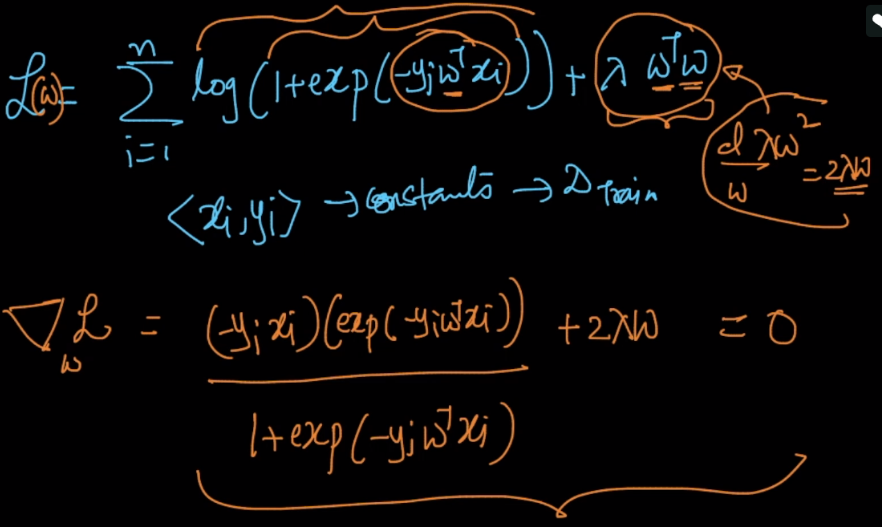 ℒ(w) = Σ_{i=1}^{n} log(1+exp(-yᵢwᵀxᵢ)) + λ wᵀw
d/w λw² = 2λw
<xᵢ,yᵢ> → constants → D Train
∇_w ℒ = (-yᵢxᵢ)(exp(-yᵢwᵀxᵢ)) / 1+exp(-yᵢwᵀxᵢ) + 2λw = 0